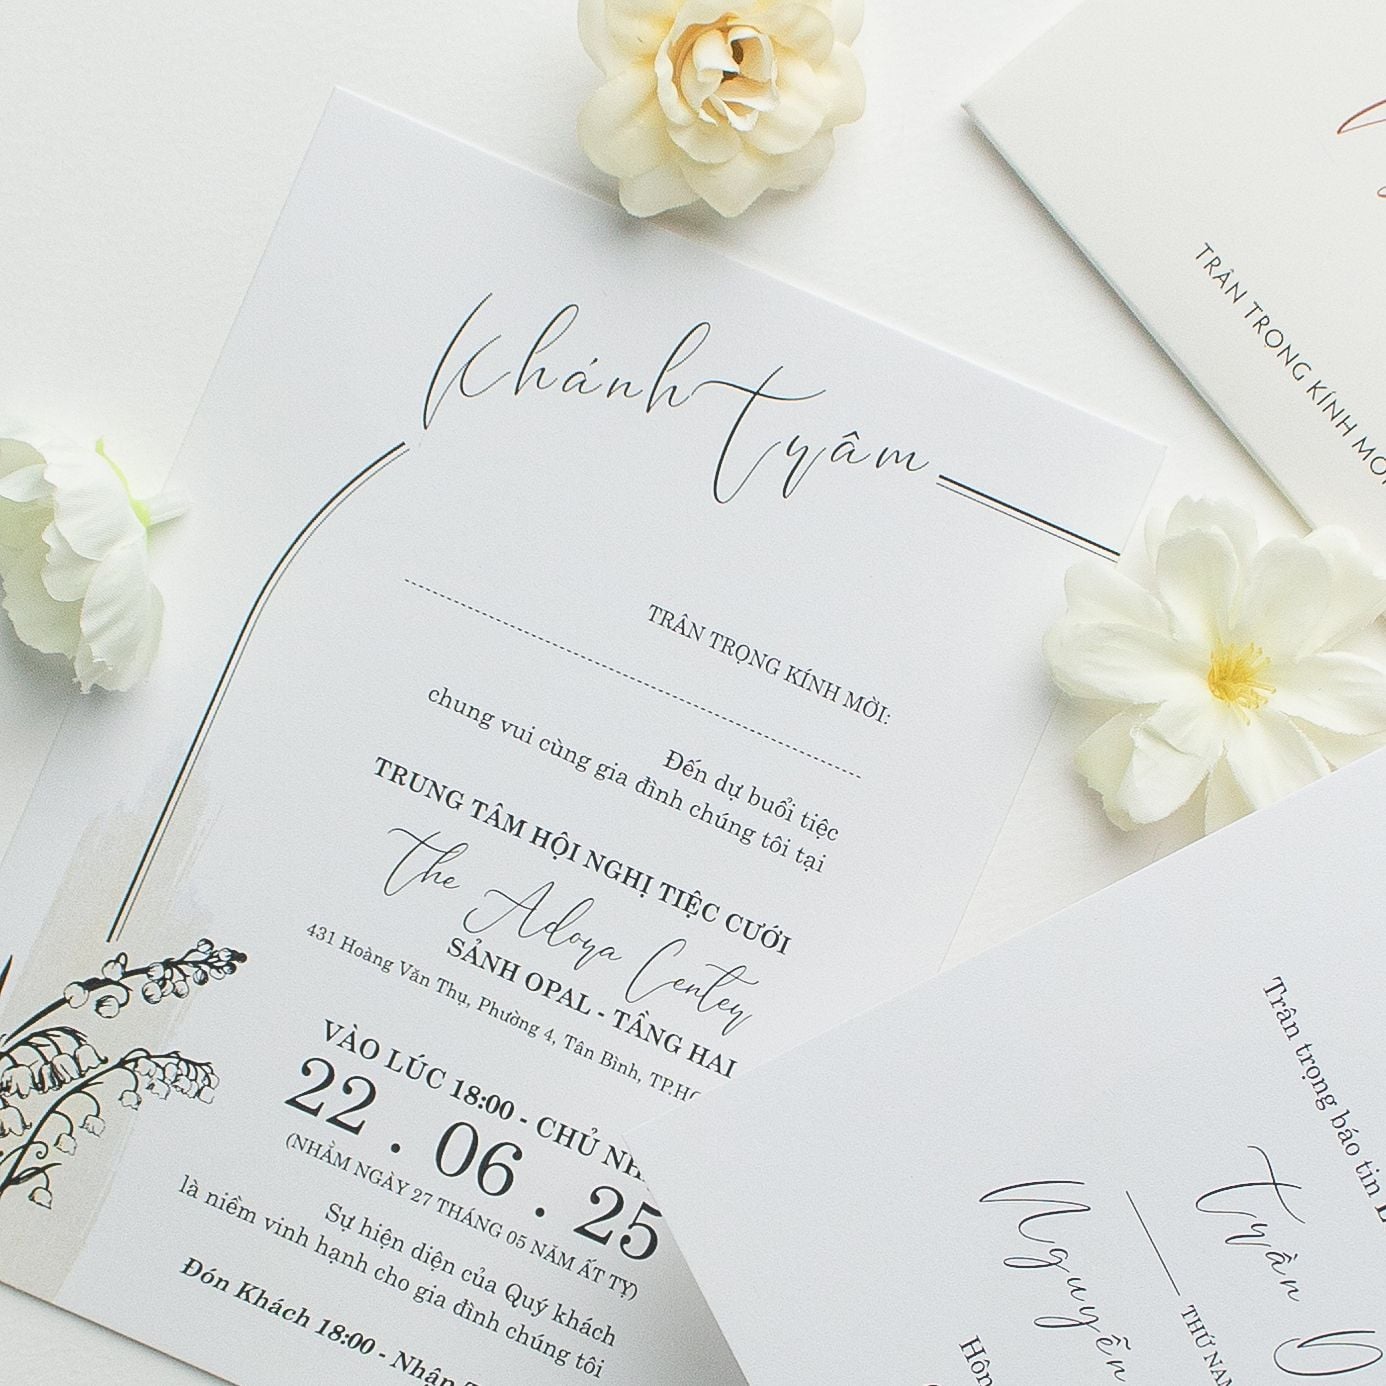 Khánh Trâm
TRÂN TRỌNG KÍNH MỜI:
Đến dự buổi tiệc
chung vui cùng gia đình chúng tôi tại
TRUNG TÂM HỘI NGHỊ TIỆC CƯỚI
The Adora Center
SẢNH OPAL - TẦNG HAI
431 Hoàng Văn Thụ, Phường 4, Tân Bình,
VÀO LÚC 18:00 - CHỦ
22 . 06 . 25
(NHẰM NGÀY 27 THÁNG 05 NĂM ẤT TỴ)
Sự hiện diện của Quý khách
là niềm vinh hạnh cho gia đình chúng tôi
Đón Khách 18:00 - Nhận
TRÂN TRỌNG KÍNH MỜI
Trân trọng báo tin
Trần
Nguyễn
THỨ